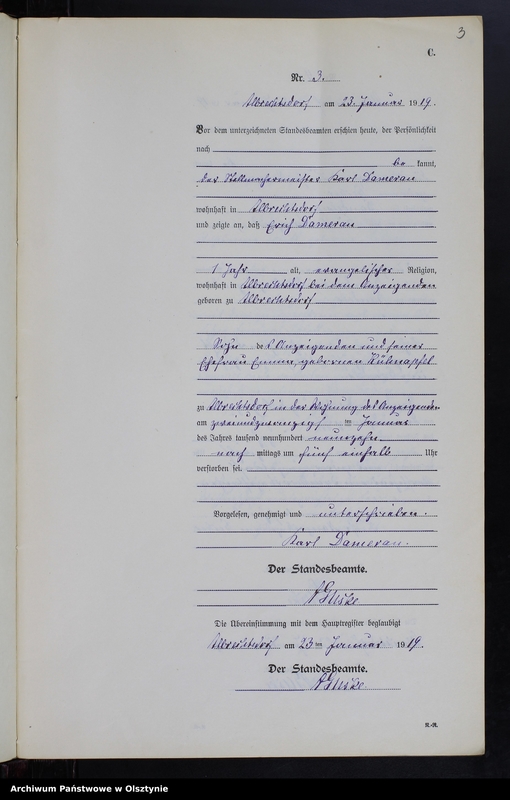 3
C.
Nr. 3.
Albrechtsdorf am 23. Januar 1919.
Vor dem unterzeichneten Standesbeamten erschien heute, der Persönlichkeit
nach
be kannt,
der Stellmachermeister Karl Damerau
wohnhaft in Albrechtsdorf
und zeigte an, daß Erich Damerau
1 Jahr alt, evangelischer Religion,
wohnhaft in Albrechtsdorf bei dem Anzeigenden
geboren zu Albrechtsdorf
Sohn des Anzeigenden und seiner
Ehefrau Emma, geborenen Kühnapfel
zu Albrechtsdorf in der Wohnung des Anzeigenden
am zweiundzwanzigsten Januar
des Jahres tausend neunhundert neunzehn
nach mittags um fünf einhalb Uhr
verstorben sei.
Vorgelesen, genehmigt und unterschrieben.
Karl Damerau.
Der Standesbeamte.
Die Übereinstimmung mit dem Hauptregister beglaubigt
Albrechtsdorf am 23 ten Januar 1919.
Der Standesbeamte.
K.-R.
Archiwum Państwowe w Olsztynie